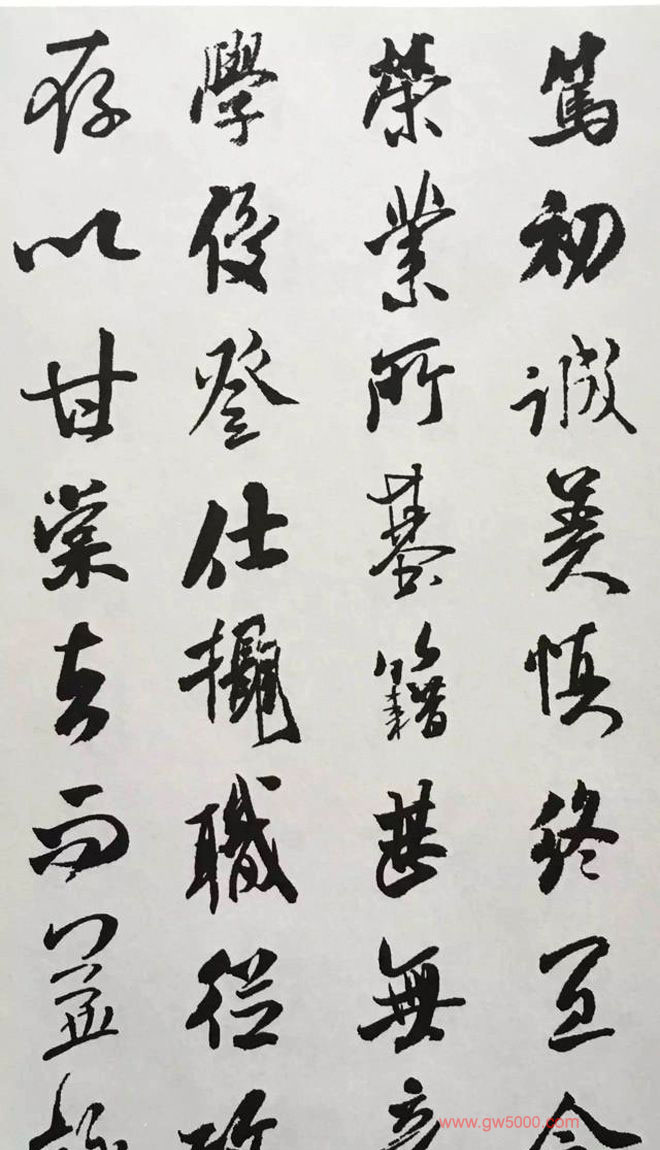 篤初誠美慎終宜令
榮業所基籍甚無竟
學優登仕攝職從政
存以甘棠去而益詠
www.gw5000.com